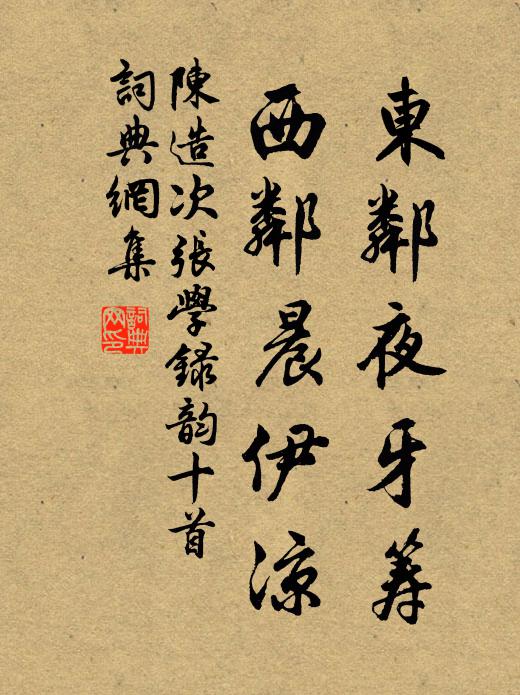 東鄰夜牙筹
西鄰晨伊涼
陳造次張學録韵十首
詞典網集
詞典网印